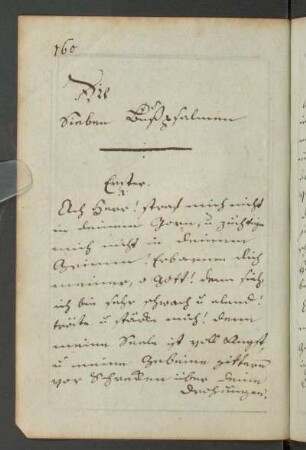 160
Die
Sieben Bußpsalmen
Erster.
Ach Herr! straf mich nicht
in deinem Zorn, u züchtige
mich nicht in deinem
Grimm! Erbarme dich
meiner, o Gott! denn sieh,
ich bin sehr schwach u elend!
tröste u stärke mich! denn
meine Seele ist voll Angst,
u meine Gebeine zittern
vor Schrecken über deine
Drohungen.